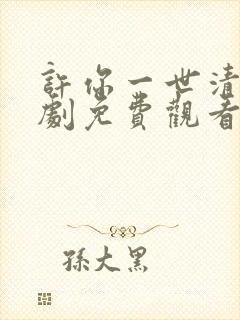 許你一世清
劇免費觀看
孫大黑